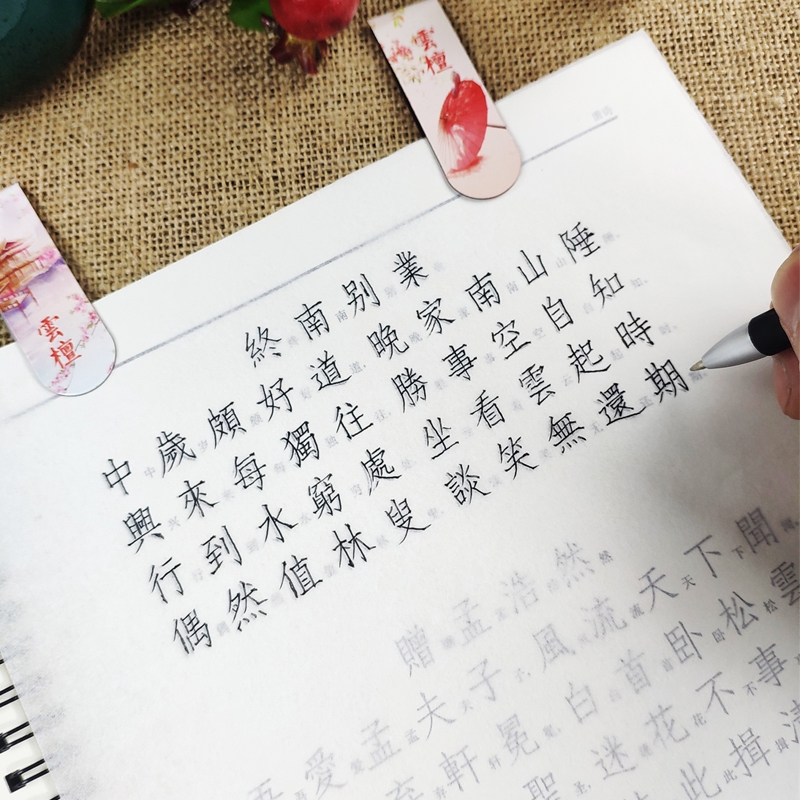 雲檀
雲檀
終南別業
中歲頗好道 晚家南山陲
興來每獨往 勝事空自知
行到水窮處 坐看雲起時
偶然值林叟 談笑無還期
贈孟浩然
吾愛孟夫子 風流天下聞
棄軒冕 白首臥松雲
聖 迷花不事
此揖清